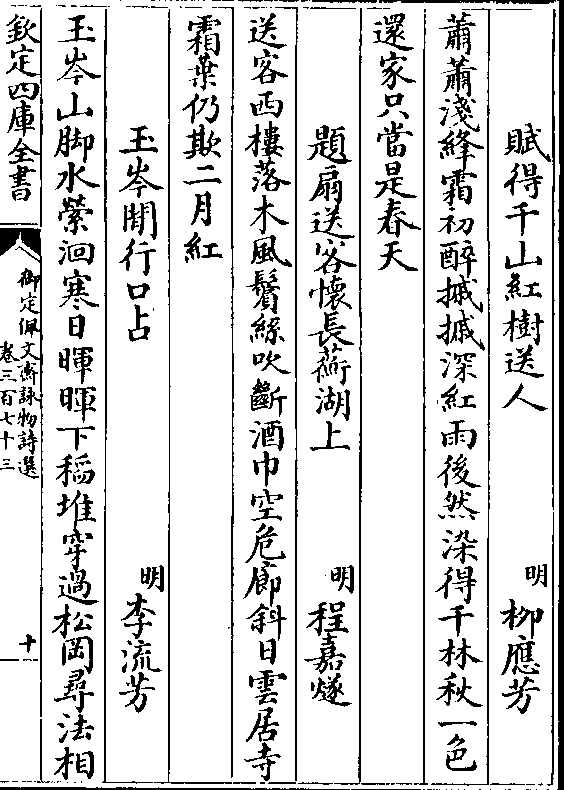 賦得千山紅樹送人 明 柳應芳
蕭蕭淺絳霜初醉摵摵深紅雨後然染得千林秋一色
還家只當是春天
題扇送客懷長蘅湖上 明 程嘉燧
送客西樓落木風鬢絲吹斷酒巾空危廊斜日雲居寺
霜葉仍欺二月紅
玉岑閒行口占 明 李流芳
玉岑山脚水縈洄寒日暉暉下稻堆穿過松岡尋法相
欽定四庫全書
御定佩文齋詠物詩選
卷三百七十三
十